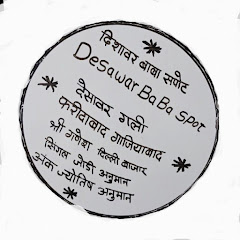 दिशावर बाबा सपोट
Desawar BaBa spot
देसावर गली
फरीदाबाद गाजियाबाद
श्री गणेश दिल्ली बाजार
सिंगल जोडी अनुमान
अंक ज्योतिष अनुमान